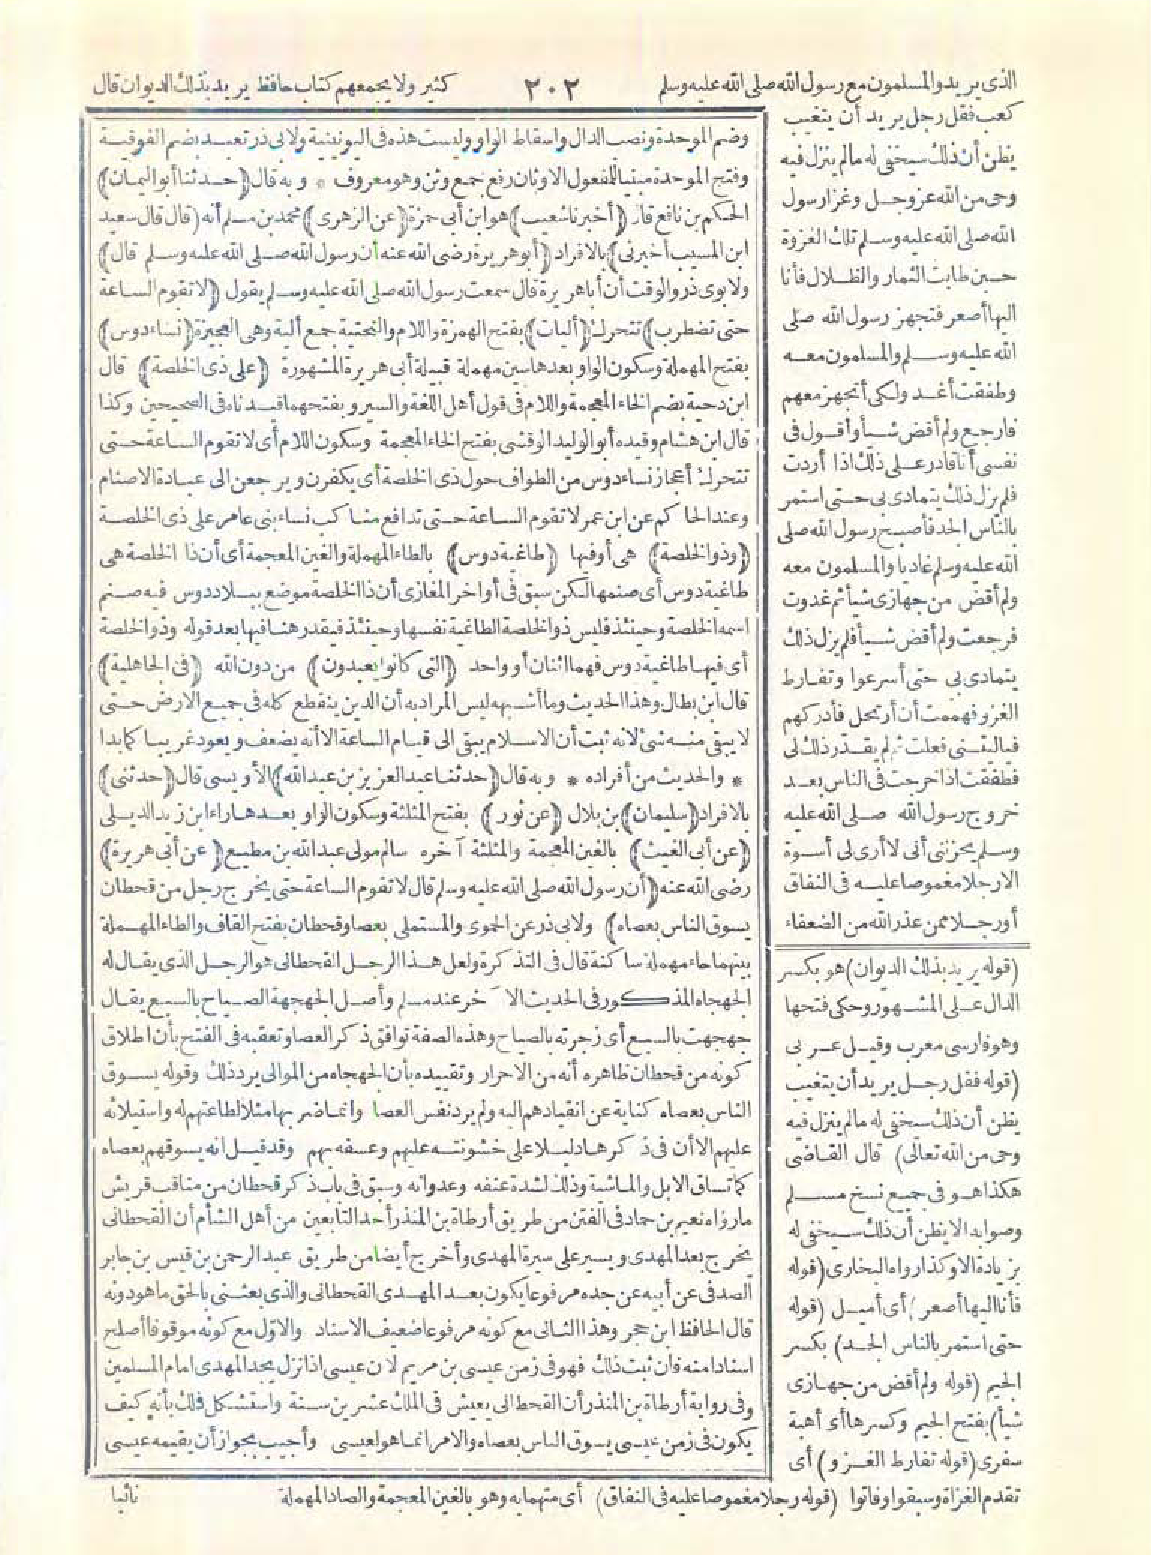 الذى يريد والمسلمون مع رسول الله صلى الله عليه وسلم ٢٠٢ كثير ولا يجمعهم كتاب حافظ يريد بذلك الديوان قال
كعب فقل رجل يريد أن يتغيب
يظن أن ذلك سيخفى له مالم ينزل فيه
وحى من الله عز وجل وغزا رسول
الله صلى الله عليه وسلم تلك الغزوة
حين طابت الثمار والظلال فأنا
اليها أصعر فتجهز رسول الله صلى
الله عليه وسلم والمسلمون معه
وطفقت أغدو لكى أتجهز معهم
فارجع ولم أقض شيأ وأقول فى
نفسى أنا قادر على ذلك اذا أردت
فلم يزل ذلك يتمادى بى حتى استمر
بالناس الجد فأصبح رسول الله صلى
الله عليه وسلم غاديا والمسلمون معه
ولم أقض من جهازى شيأ ثم غدوت
فرجعت ولم أقض شيأ فلم يزل ذلك
يتمادى بى حتى أسرعوا وتفارط
الغزو فهممت أن أرتحل فأدركهم
فياليتنى فعلت ثم لم يقدر ذلك لى
فطفقت اذا خرجت فى الناس بعد
خروج رسول الله صلى الله عليه
وسلم يحزننى أنى لا أرى لى أسوة
الا رجلا مغموصا عليه فى النفاق
أو رجلا ممن عذر الله من الضعفاء
وضم الموحدة ونصب الدال واسقاط الواو وليست هذه فى اليونينية ولابى ذر تعبد بضم الفوقية
وفتح الموحدة مبنيا للمفعول الاوثان رفع جمع وثن وهو معروف * وبه قال (حدثنا أبو اليمان)
الحكم بن نافع قال (أخبرنا شعيب) هو ابن أبى حمزة (عن الزهرى) محمد بن مسلم أنه (قال قال سعيد
ابن المسيب أخبرنى) بالافراد (أبو هريرة رضى الله عنه أن رسول الله صلى الله عليه وسلم قال)
ولابوى ذر والوقت أن أبا هريرة قال سمعت رسول الله صلى الله عليه وسلم يقول (لا تقوم الساعة
حتى تضطرب) تتحرك (أليات) بفتح الهمزة واللام والتحتية جمع ألية وهى العجيزة (نساء دوس)
بفتح المهملة وسكون الواو بعدها سين مهملة قبيلة أبى هريرة المشهورة (على ذى الخلصة) قال
ابن دحية بضم الخاء المعجمة واللام فى قول أهل اللغة والسير وبفتحهما قيدناه فى الصحيحين وكذا
قال ابن هشام وقيده أبو الوليد الوقشى بفتح الخاء المعجمة وسكون اللام أى لا تقوم الساعة حتى
تتحرك أعجاز نساء دوس من الطواف حول ذى الخلصة أى يكفرن ويرجعن الى عبادة الاصنام
وعند الحاكم عن ابن عمر لا تقوم الساعة حتى تدافع مناكب نساء بنى عامر على ذى الخلصة
(وذو الخلصة) هى أو فيها (طاغية دوس) بالطاء المهملة والغين المعجمة أى أن ذا الخلصة هى
طاغية دوس أى صنمها لكن سبق فى أواخر المغازى أن ذا الخلصة موضع ببلاد دوس فيه صنم
اسمه الخلصة وحينئذ فليس ذو الخلصة الطاغية نفسها وحينئذ فيقدر هنا فيها بعد قوله وذو الخلصة
أى فيها طاغية دوس فهما اثنان أو واحد (التى كانوا يعبدون) من دون الله (فى الجاهلية)
قال ابن بطال وهذا الحديث وما أشبهه ليس المراد به أن الدين ينقطع كله فى جميع الارض حتى
لا يبقى منه شئ لانه ثبت أن الاسلام يبقى الى قيام الساعة الا أنه يضعف ويعود غريبا كما بدا
* والحديث من أفراده * وبه قال (حدثنا عبد العزيز بن عبد الله) الأويسى قال (حدثنى)
بالافراد (سليمان) بن بلال (عن ثور) بفتح المثلثة وسكون الواو بعدها راء ابن زيد الديلى
(عن أبى الغيث) بالغين المعجمة والمثلثة آخره سالم مولى عبد الله بن مطيع (عن أبى هريرة)
رضى الله عنه (أن رسول الله صلى الله عليه وسلم قال لا تقوم الساعة حتى يخرج رجل من قحطان
يسوق الناس بعصاه) ولابى ذر عن الحموى والمستملى بعصا وقحطان بفتح القاف والطاء المهملة
بينهما حاء مهملة ساكنة قال فى التذكرة ولعل هذا الرجل القحطانى هو الرجل الذى يقال له
الجهجاه المذكور فى الحديث الآخر عند مسلم وأصل الجهجهة الصياح بالسبع يقال
جهجهت بالسبع أى زجرته بالصياح وهذه الصفة توافق ذكر العصا وتعقبه فى الفتح بأن اطلاق
كونه من قحطان ظاهره أنه من الاحرار وتقييده بأن الجهجاه من الموالى يرد ذلك وقوله يسوق
الناس بعصاه كناية عن انقيادهم اليه ولم يرد نفس العصا وانما ضربها مثلا لطاعتهم له واستيلائه
عليهم الا أن فى ذكرها دليلا على خشونته عليهم وعسفه بهم وقد قيل انه يسوقهم بعصاه
كما تساق الابل والماشية وذلك لشدة عنفه وعدوانه وسبق فى باب ذكر قحطان من مناقب قريش
مارواه نعيم بن حماد فى الفتن من طريق أرطاة بن المنذر أحد التابعين من أهل الشأم أن القحطانى
يخرج بعد المهدى ويسير على سيرة المهدى وأخرج أيضا من طريق عبد الرحمن بن قيس بن جابر
الصدفى عن أبيه عن جده مرفوعا يكون بعد المهدى القحطانى والذى بعثنى بالحق ما هو دونه
قال الحافظ ابن حجر وهذا الثانى مع كونه مرفوعا ضعيف الاسناد والاوّل مع كونه موقوفا أصلح
اسنادا منه فان ثبت ذلك فهو فى زمن عيسى بن مريم لان عيسى اذا نزل يجد المهدى امام المسلمين
وفى رواية أرطاة بن المنذر أن القحطانى يعيش فى الملك عشرين سنة واستشكل ذلك بأنه كيف
يكون فى زمن عيسى يسوق الناس بعصاه والامر انما هو لعيسى وأجيب بجواز أن يقيمه عيسى
(قوله يريد بذلك الديوان) هو بكسر
الدال على المشهور وحكى فتحها
وهو فارسى معرب وقيل عربى
(قوله فقل رجل يريد أن يتغيب
يظن أن ذلك سيخفى له مالم ينزل فيه
وحى من الله تعالى) قال القاضى
هكذا هو فى جميع نسخ مسلم
وصوابه الا يظن أن ذلك سيخفى له
بزيادة الا وكذا رواه البخارى (قوله
فأنا اليها أصعر) أى أميل (قوله
حتى استمر بالناس الجد) بكسر
الجيم (قوله ولم أقض من جهازى
شيأ) بفتح الجيم وكسرها أى أهبة
سفرى (قوله تفارط الغزو) أى
تقدم الغزاة وسبقوا وفاتوا (قوله رجلا مغموصا عليه فى النفاق) أى متهما به وهو بالغين المعجمة والصاد المهملة
نائبا